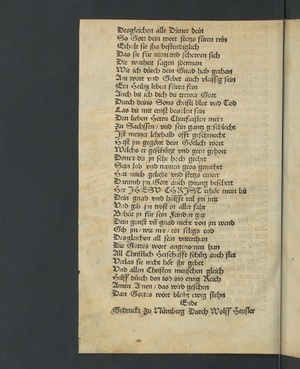 Desgleichen alle Diener dein
So Gott dein wort stetz füren rein
Erhalt sie sha bestendiglich
Das sie für niemand schewen sich
Die warheit sagen jderman
Wie ich durch dein Gnad hab gethan
Am wort vnd Gebet auch vleissig sein
Ein Heilig leben füren fein
Auch bit ich dich du trewer Gott
Durch deins Sons christi blut vnd Tod
Las dir mit ernst bevolen sein
Den lieben Herrn Churfürsten mein
Zu Sachssen / vnd sein gantz geschlecht
Ist meiner lehr halb offt geschmecht
Hast jm gegönt dein Götlich wort
Welchs er geschützt vnd gern gehort
Domit dir zu sehr hoch geehrt
Sein lob vnd namen gros gemehrt
Hat mich geliebt vnd stetz ernert
Darumb jm Gott auch gnung beschert
Her JHESV CHRIST erhör mein bit
Dein gnad vnd hülffe teil jm mit
Vnd gib jm trost in aller fahr
Behüt jn für sein feinden gar
Dein gunst vnd gnad nicht von jm wend
Gib jm / wie mir / ein seligs end
Desgleichen all sein vnterthan
Die Gottes wort angenomen han
All Christlich Herschafft schütz auch stet
Verlas sie nicht hör ihr gebet
Vnd allen Christen menschen gleich
Hilff durch den tod ins ewig Reich
Amen Amen / das wird geschen
Dan Gottes wort bleibt ewig stehn
Ende
Gedruckt Zu Nürmberg Durch Wolff Heusler